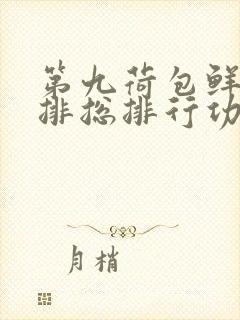 第九荷包鲜
排总排行功
月梢